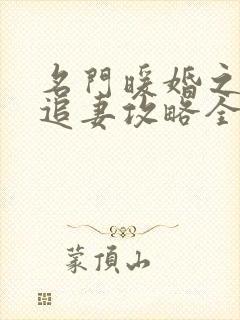 名門暖婚之
追妻攻略全
蒙頂山